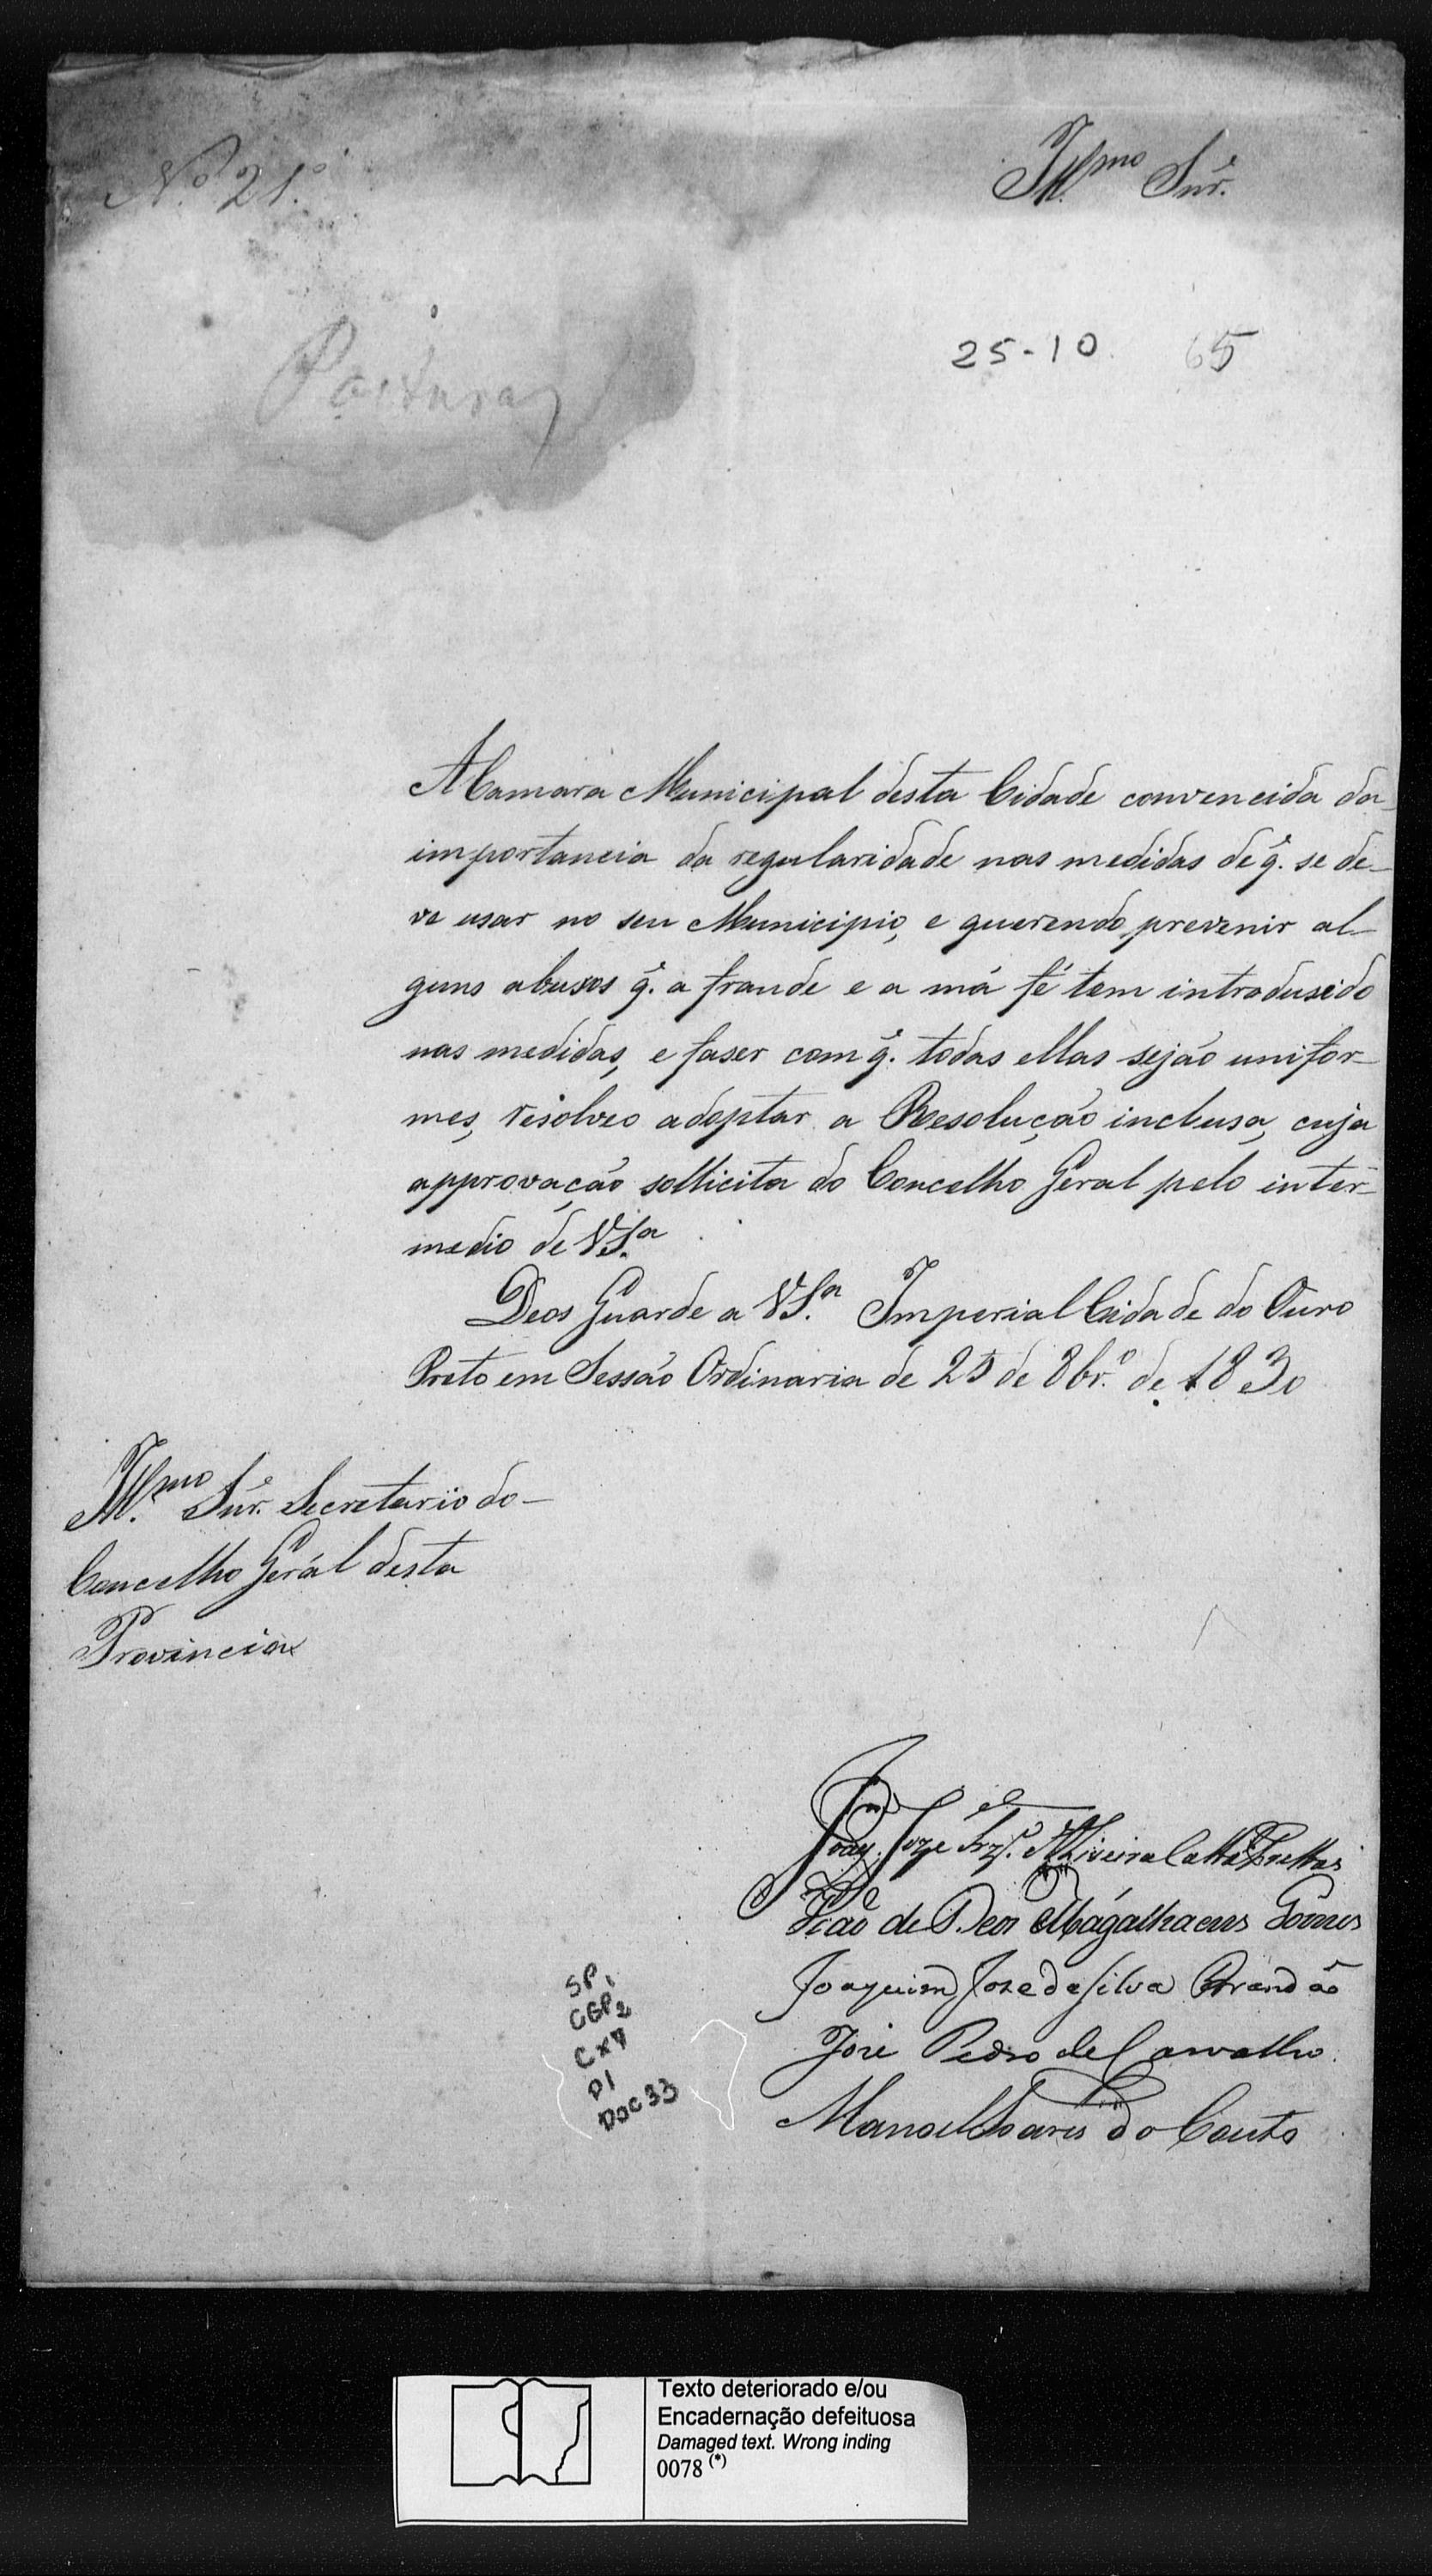 N.º 21.
Illmo Snr.
Posturas
25-10 65
A Camara Municipal desta Cidade convencida da
importancia da regularidade nas medidas de q̃. se de-
ve usar no seu Municipio, e querendo prevenir al-
guns abusos q̃. a fraude e a má fé tem introdusido
nas medidas, e faser com q̃. todas ellas sejão unifor-
mes, resolveo adoptar a Resolução inclusa, cuja
approvação sollicita do Concelho Geral pelo inter-
medio de VS.ª
Deos Guarde a VS.ª Imperial Cidade do Ouro
Preto em Sessão Ordinaria de 25 de 8br.º de 1830
Ill.mo Snr. Secretario do
Concelho Gerál desta
Provincia
Joaq.m Joze
João de Deos Magalhaens Gomes
Joaquim Jose da Silva Brandão
José Pedro de Carvalho.
Manoel Soares do Couto
SP1
CGP2
CX7
D1
DOC 33
Texto deteriorado e/ou
Encadernação defeituosa
Damaged text. Wrong inding
0078 (*)